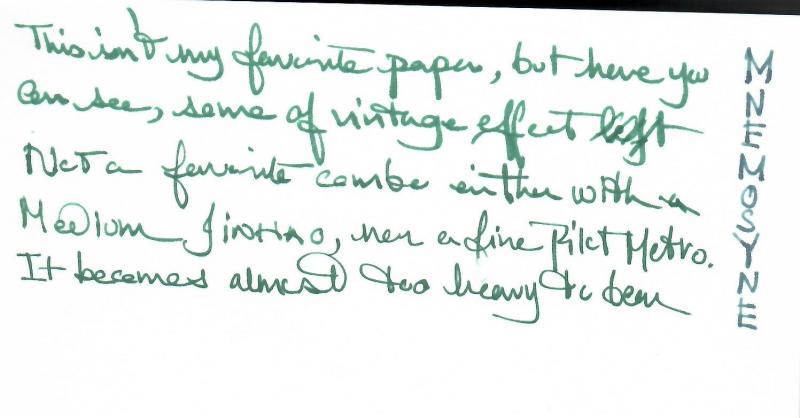 This isn't my favorite paper, but here you
can see, some of vintage effect left
Not a favorite combo either with a
Medium Jinhao, nor a fine Pilot Metro.
It becomes almost too heavy to bear
MNEMOSYNE